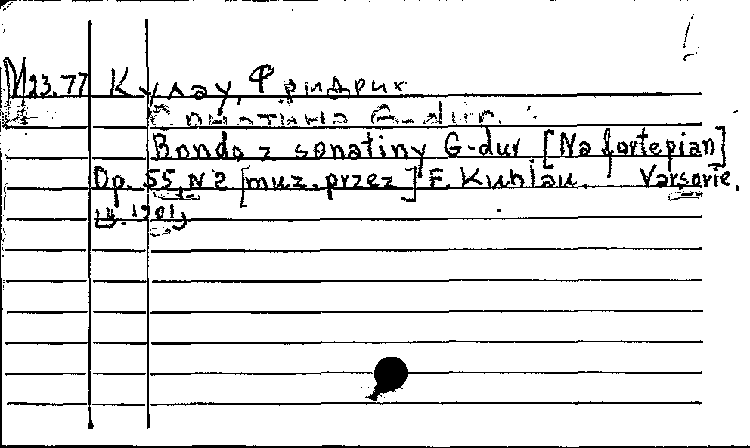 M23.77 Кулау, Фридрих
Сонатина G-dur.
Rondo z sonatiny G-dur. [Na fortepian]
Op. 55, N 2 [muz. przez] F. Kuhlau. Varsovie,
1901,